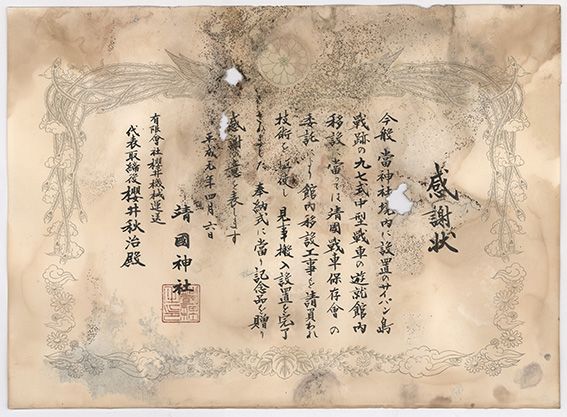 感謝状
今般 當神社境内に設置のサイパン島
戰跡の九七式中型戰車の遊就館内
移設に當っては靖國戰車保存會の
委託により館内移設工事を請負われ
技術を し 見事搬入設置を完了
されました 奉納式に當り記念品を贈り
感謝の意を表します
平成 年四月六日
靖國神社
有限會社櫻井機械運送
代表取締役櫻井秋治殿